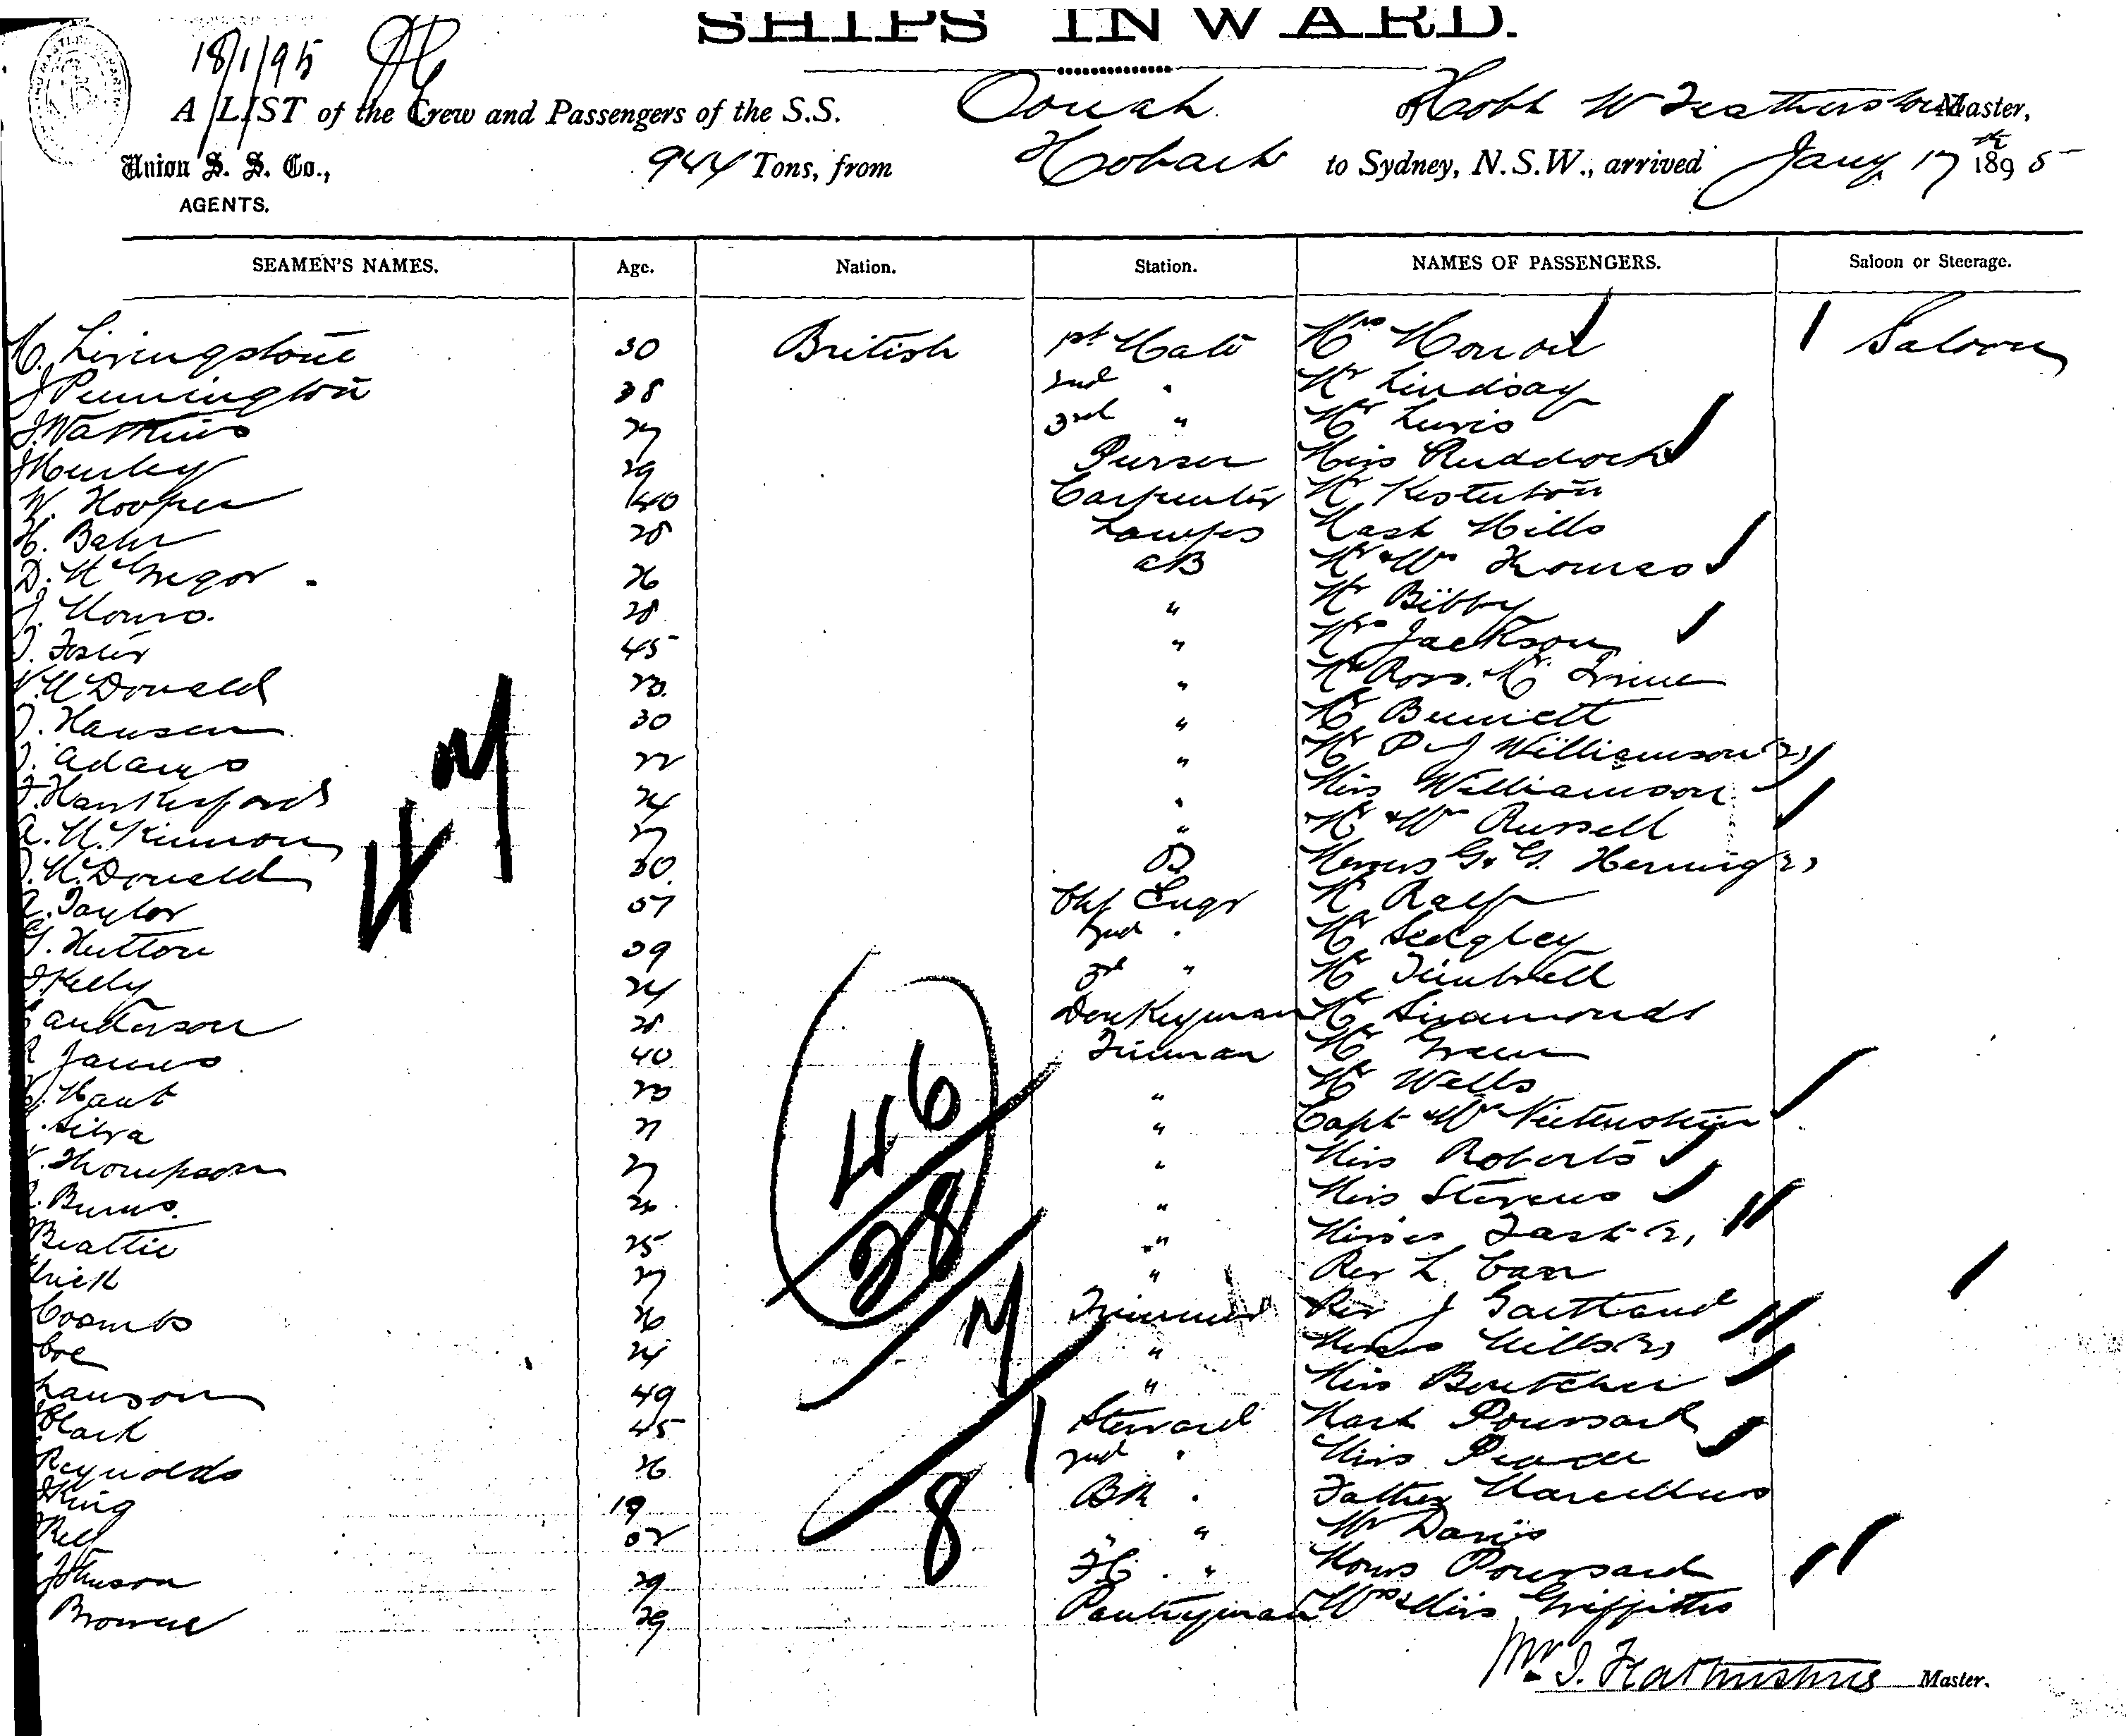 SHIPS INWARD.
18/1/95
A LIST of the Crew and Passengers of the S.S. Oonah of Hobt W Featherstone Master,
Union S. S. Co., 944 Tons, from Hobart to Sydney, N.S.W., arrived Jany 17th 1895
AGENTS.
SEAMEN'S NAMES. Age. Nation. Station. NAMES OF PASSENGERS. Saloon or Steerage.
C. Livingstone 30 British 1st Mate Mrs 1 Saloon
J Pennington 38 2nd " Mr Lindsay
J. Watkins 27 3rd " Mr Lewis
J Hurley 29 Purser Miss Ruddock
W. Hooper 40 Carpenter Mr Kesterton
H. Bahr 28 Lamps Mast Mills
D. McGregor 26 AB Mr & Mrs Thomas
J. Monro. 28 " Mr Bibby
J. Foster 45 " Mrs Jackson
McDonald 23 " Mr Ross. Mr
J. Hansen 30 " Mr Bennett
J. Adams 22 " Mr P J Williamson (2)
F. Hankisford 24 " Miss Williamson
A. McKinnon 27 " Mr & Mrs Russell
J. McDonald 30 B Messrs G. & G. Herring (2)
A. Taylor 37 Chf Engr Mr Ralf
G. Hutton 39 2nd " Mr Sedgley
J. Kelly 24 3rd " Mr Timbrell
Anderson 28 Donkeyman Mr Simmonds
James 40 Fireman Mr Green
Hant 23 " Mr Wells
Silva 21 " Capt & Mrs
Thompson 27 " Miss Roberts
Burns. 26 " Miss Stevens
Beattie 25 " Misses Task (2)
27 " Rev L Carr
Coombs 26 Trimmer Rev J Gartland
Coe 24 " Misses Mills (2)
Lawson 49 " Miss Boutcher
Clark 45 Steward Mast Poursard
Reynolds 26 2nd " Miss
King 19 BR " Father Marcellus
Bell 32 " " Mr Davis
Johnson 29 F.C. " Mons Poursard
Browne 29 Pantryman Mrs & Miss Griffiths
4 M
46
28
M
8
W. J. Featherstone Master.